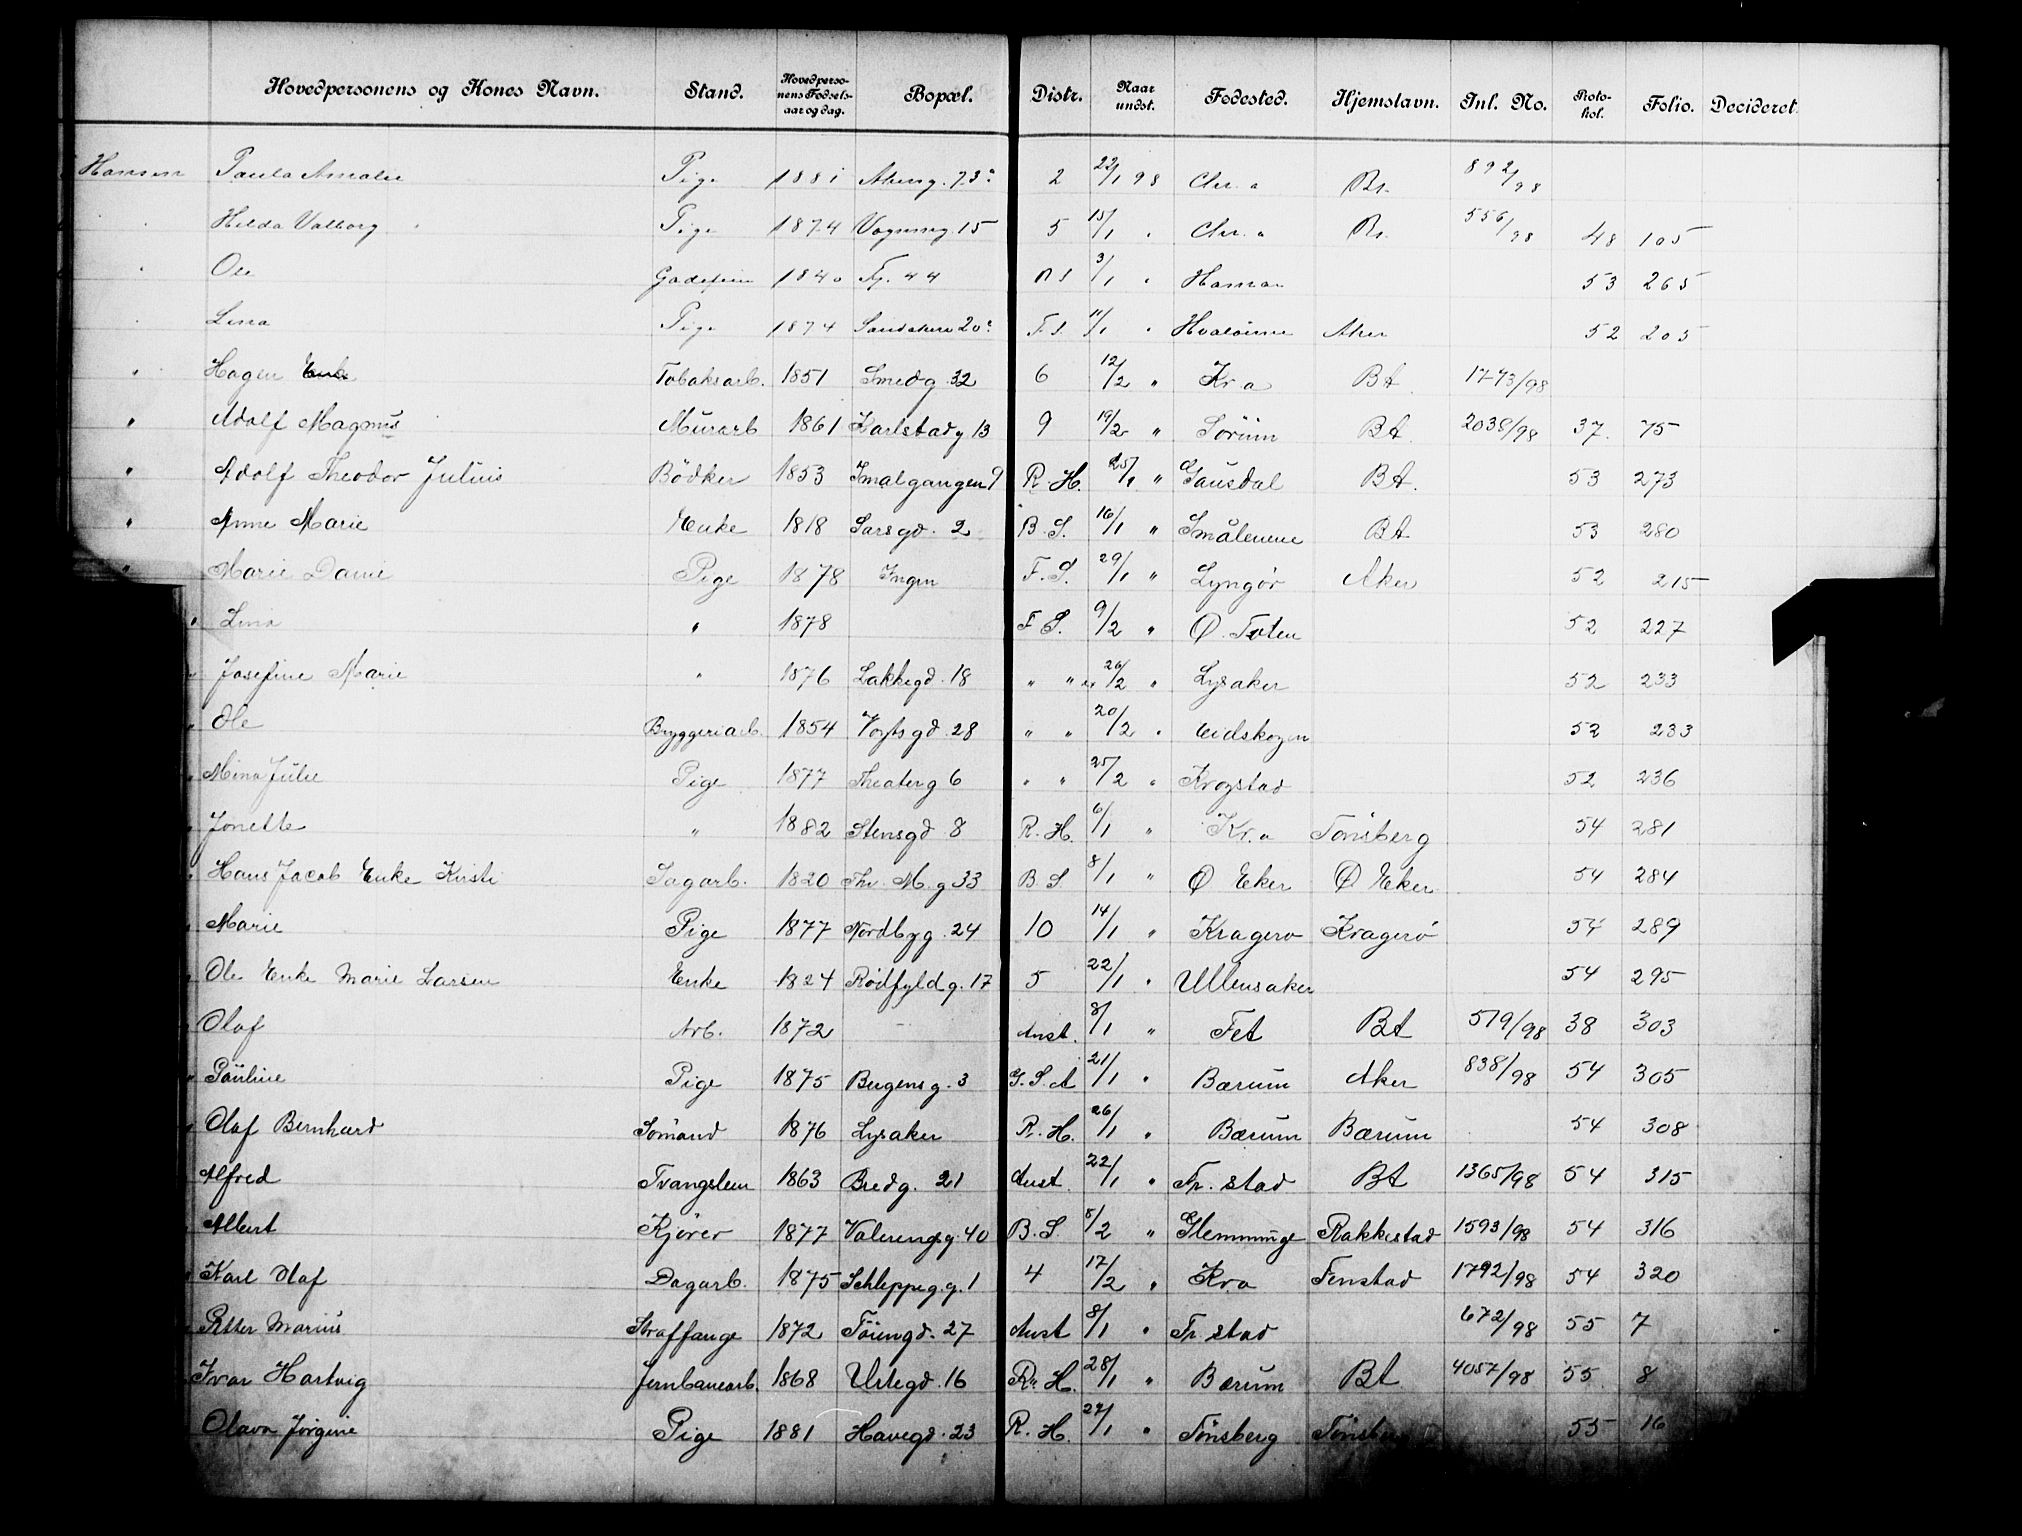 Hovedpersonens og Kones Navn. Stand. Hovedpersonens Fødselsaar og dag. Bopæl. Distr. Naar undst. Fødested. Hjemstavn. Inl. No. Protokol. Folio. Decideret.
Hansen Paula Amalie Pige 1881 Akersg. 73 2 22/1 98 Chr.a Bt. 892/98
" Hilda Valborg Pige 1874 Vognmg. 15 5 15/1 " Chr.a Bt. 556/98 48 105
" Ole 1840 44 3/1 " Hamar 53 265
" Lina Pige 1874 20 F.S. 11/1 " Hvaløerne Aker 52 205
" Hagen Enke Tobaksarb. 1851 Smedg 32 6 12/2 " Kr.a Bt 1773/98
" Adolf Magnus Murarb 1861 Karlstadg 13 9 19/2 " Sørum Bt. 2038/98 37. 75
" Adolf Theodor Julius Bödker 1853 Smalgangen 9 R.H. 25/1 " Gausdal Bt. 53 273
" Anne Marie Enke 1818 Sarsgd. 2 B.S. 16/1 " Smålenene Bt 53 280
" Marie Pige 1878 Ingen F.S. 29/1 " Lyngör Aker 52 215
" Lina " 1878 F S. 9/2 " Ø. Toten 52 227
" Josefine Marie " 1876 Lakkegd. 18 " " 26/2 " Lysaker 52 233
" Ole Bryggeriarb. 1854 Vogtsgd. 28 " " 20/2 " Eidskogen 52 233
" Mina Julie Pige 1877 Theaterg 6 " " 25/2 " Krogstad 52 236
" Jonette " 1882 Stensgd 8 R.H. 6/1 " Kr.a Tønsberg 54 281
" Hans Jacob Enke Kirsti Sagarb. 1820 Thv. M. g 33 B S 8/1 " Ø Eker Ø Eker 54 284
" Marie Pige 1877 Nordbyg. 24 10 14/1 " Kragerø Kragerö 54 289
" Ole Enke Marie Larsen Enke 1824 Rødfyldg. 17 5 22/1 " Ullensaker 54 295
" Olaf Arb. 1872 — Anst. 8/1 " Fet Bt 519/98 38 303
" Pauline Pige 1875 Bergensg. 3 G.S.A 21/1 " Bærum Aker 838/98 54 305
" Olaf Bernhard Sömand 1876 Lysaker R.H. 26/1 " Bærum Bærum 54 308
Alfred Tvangslem 1863 Bredg. 21 Anst. 22/1 " Fr.stad Bt 1365/98 54 315
" Albert Kjörer 1877 Valerengg. 40 B.S. 8/2 " Glemminge Rakkestad 1593/98 54 316
" Karl Olaf Dagarb. 1875 Schleppeg.g. 1 4 17/2 " Kr.a Fenstad 1792/98 54 320
" Petter Marius Straffange 1872 Töiengd. 27 Anst 8/1 " Fr stad 672/98 55 7
Ivar Hartvig Jernbanearb. 1868 Urtegd. 16 R.H. 28/1 " Bærum Bt 4057/98 55 8
Olava Jørgine Pige 1881 Havegd. 23 R.H. 29/1 " Tönsberg Tønsberg 55 16